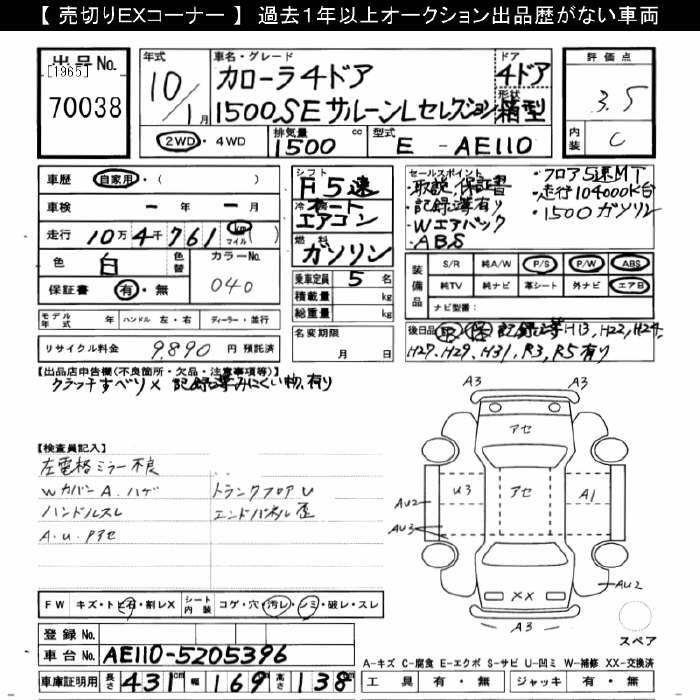 【 売切りEXコーナー 】 過去１年以上オークション出品歴がない車両
出品No.
[1965]
70038
年式
10/1月
車名・グレード
カローラ4ドア
1500SEサルーンLセレクション
ドア
4ドア
形状
箱型
評価点
3.5
内装
C
2WD・4WD
排気量
1500 cc
型式
E - AE110
車歴 自家用・( )
車検 ー年ー月
走行 10万4千761 km マイル
色 白 色替 カラーNo.
040
保証書 有・無
シフト
F5速
冷房
オート
エアコン
燃料
ガソリン
乗車定員 5 名
積載量 kg
総重量 kg
セールスポイント
・取説、保証書
・記録簿有り
・Wエアバック
・ABS
・フロア5速MT
・走行104000K台
・1500ガソリン
装備品
S/R 純A/W P/S P/W ABS
純TV 純ナビ 革シート 外ナビ エアB
ナビ型番:
モデル年式 年 ハンドル 左・右 ディーラー・並行
リサイクル料金 9,890 円 預託済
名変期限
月 日
後日品 取 保 記録簿H13,H22,H24,
H27,H29,H31,R3,R5有り
【出品店申告欄(不良箇所・欠品・注意事項等)】
クラッチすべり× 記録簿みにくい物有り
【検査員記入】
左電格ミラー不良
WカバーA.ハゲ
トランクフロアU
ハンドルスレ
エンドパネル歪
A.U.Pアセ
A3
A3
アセ
U3
アセ
A1
AU2
AU3
XX
AU2
A3
スペア
FW キズ・トビ石・割レX シート内装 コゲ・穴・汚レ・シミ・破レ・スレ
登録No.
車台No. AE110-5205396
車庫証明用 長さ 431cm 幅 169 高さ 138
A-キズ C-腐食 E-エクボ S-サビ U-凹ミ W-補修 XX-交換済
工具 有・無 ジャッキ 有・無